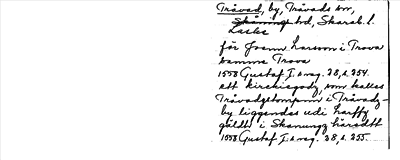 Tråvad, by, Tråvads sn,
Skånings hd, Skarab. l.
Laske
för Joenn Larsson i Trova
samme Trova
1558 Gustaf I:s reg. 28, s. 254.
ett kirckiegodz, som kalles
Tråvadztompenn i Tråvadz-
by liggendes udi Larffz
gäldh i Skånungz häradtt
1558 Gustaf I:s reg. 28, s. 255.